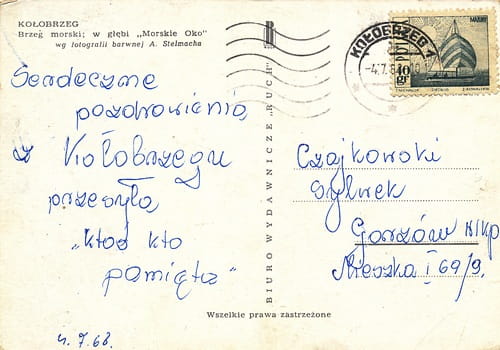 KOŁOBRZEG
Brzeg morski; w głębi „Morskie Oko"
wg fotografii barwnej A. Stelmacha
Serdeczne
pozdrowienia
z Kołobrzegu
przesyła
„ktoś kto
pamięta"
4.7.68.
BIURO WYDAWNICZE „RUCH"
KOŁOBRZEG 1
-4.7.6
40 gr
Czajkowski
Sylwek
Gorzów n/Wp
Mieszka I 69/9.
Wszelkie prawa zastrzeżone